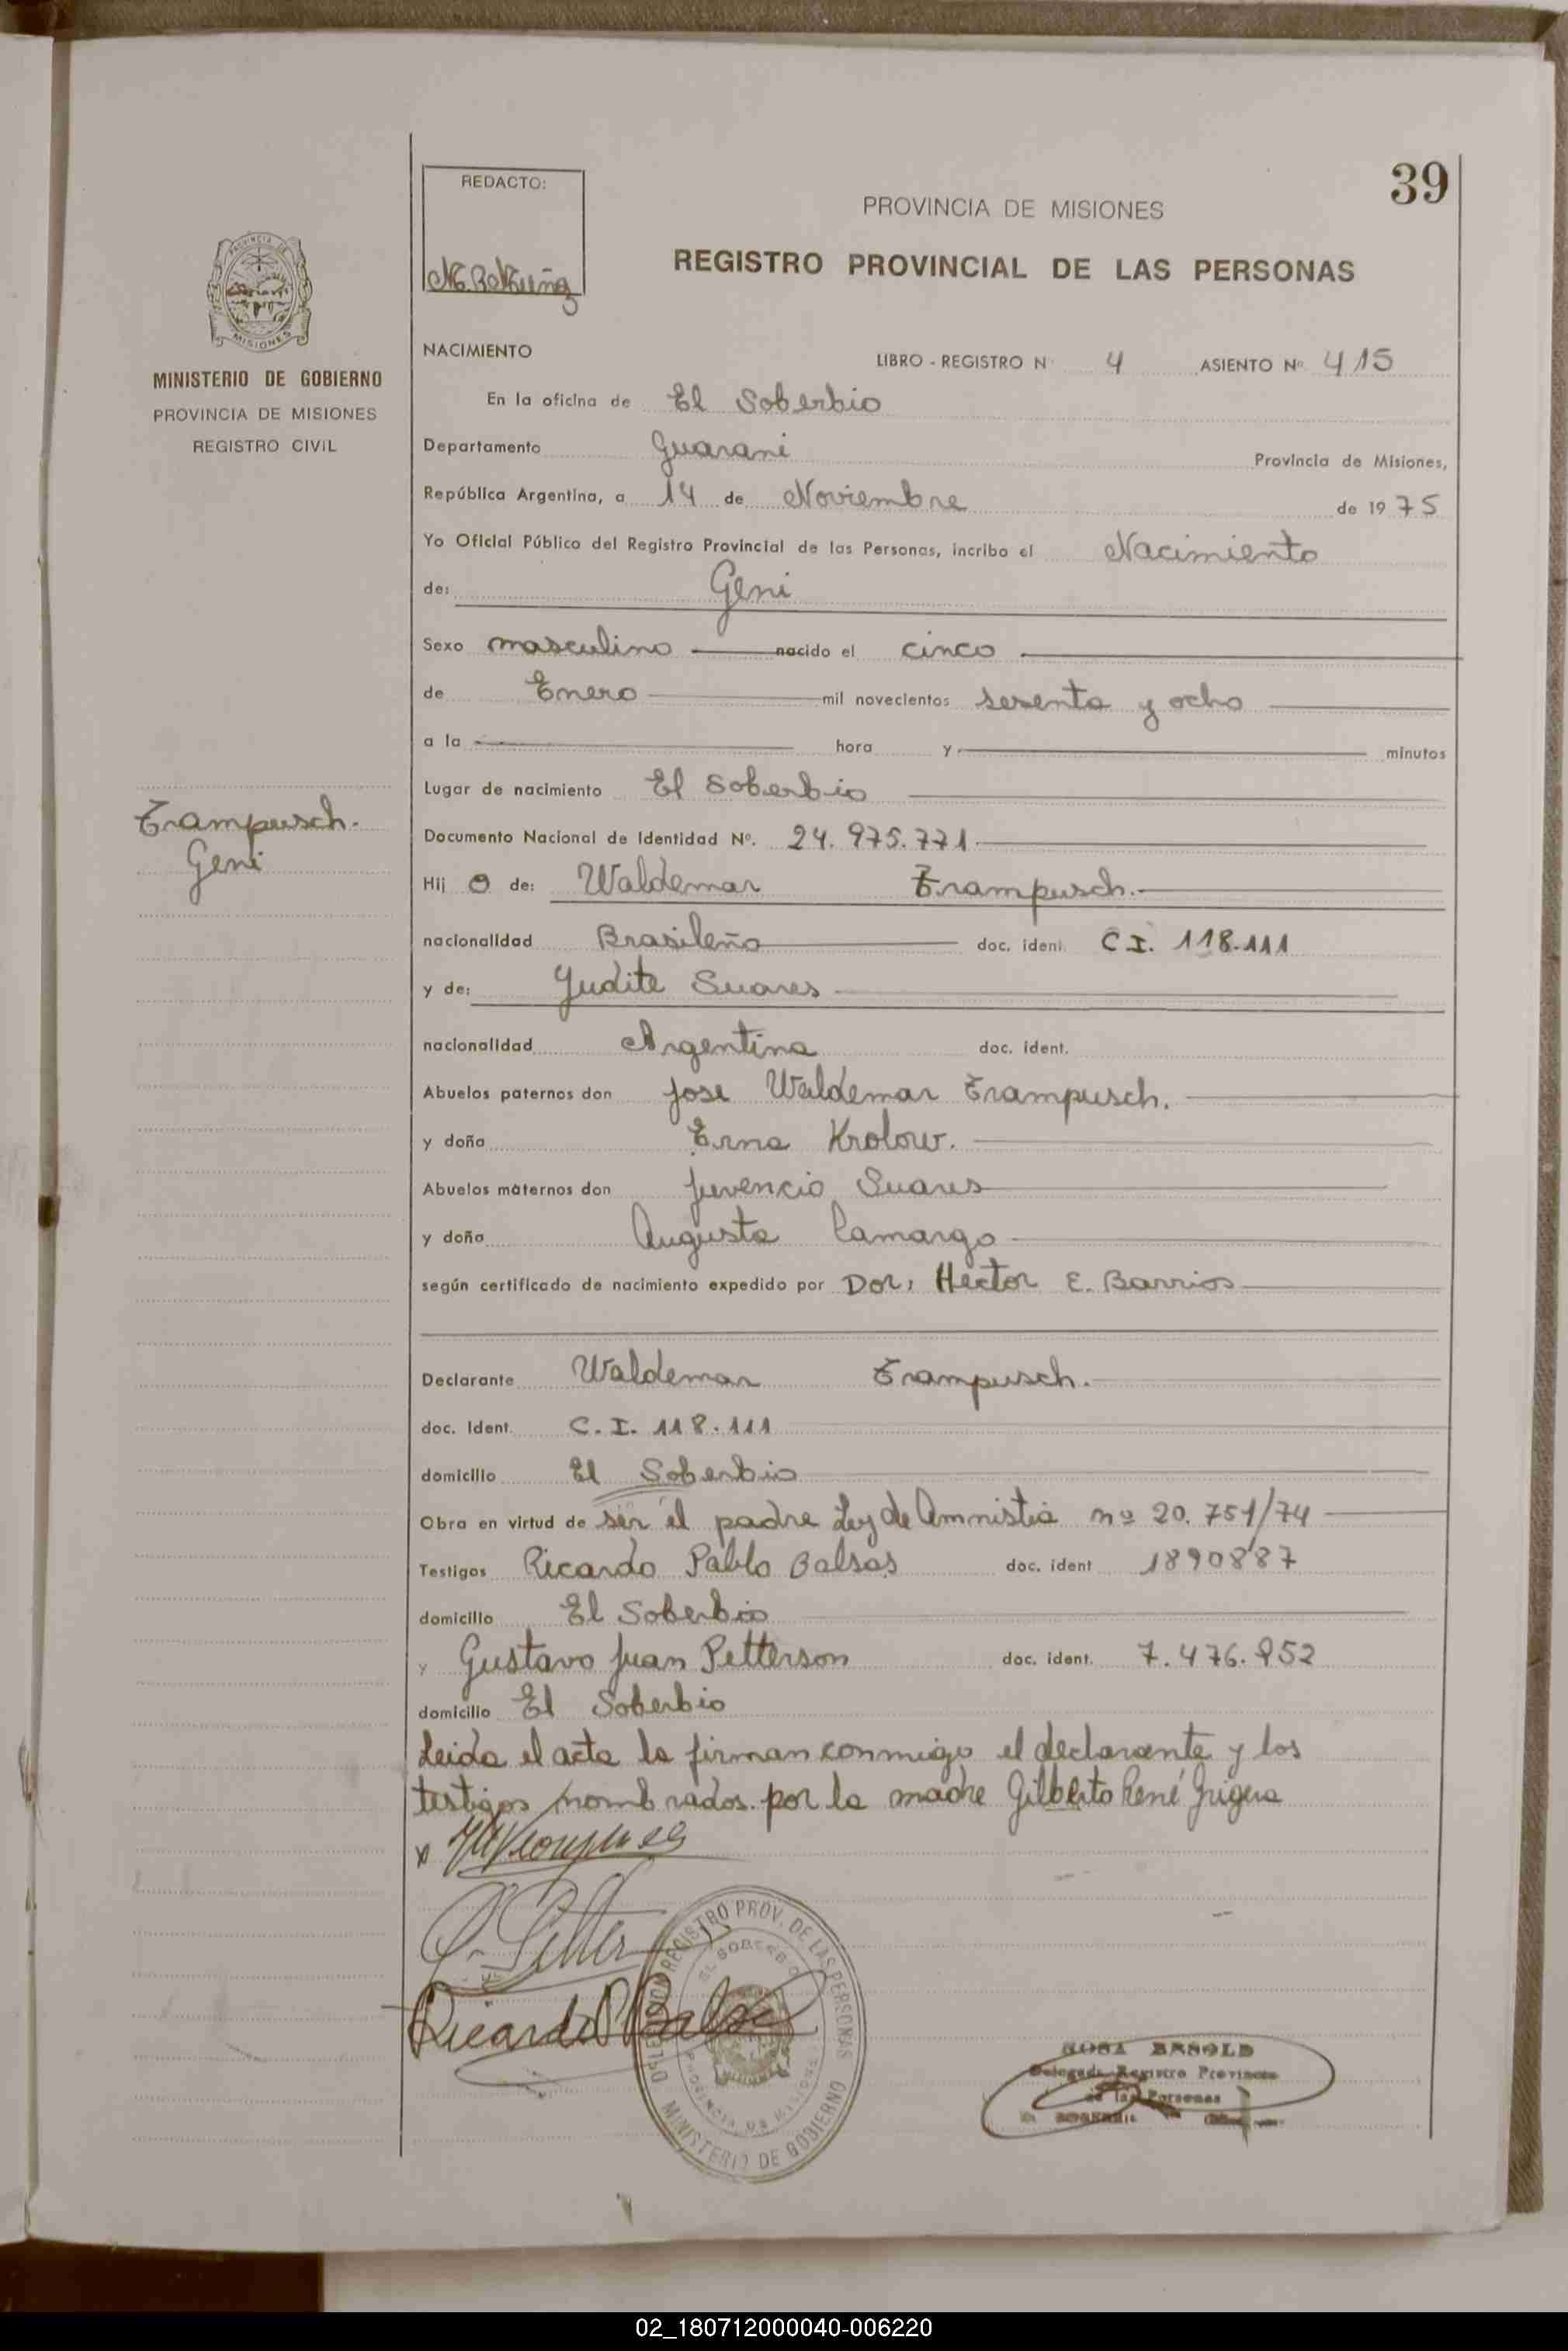 39
REDACTO:
PROVINCIA DE MISIONES
REGISTRO PROVINCIAL DE LAS PERSONAS
PROVINCIA DE
MISIONES
MINISTERIO DE GOBIERNO
PROVINCIA DE MISIONES
REGISTRO CIVIL
NACIMIENTO LIBRO - REGISTRO N 4 ASIENTO Nº 415
En la oficina de El Soberbio
Departamento Guarani Provincia de Misiones,
República Argentina, a 14 de Noviembre de 1975
Yo Oficial Público del Registro Provincial de las Personas, incribo el Nacimiento
de: Geni
Sexo masculino nacido el cinco
de Enero mil novecientos sesenta y ocho
a la hora y minutos
Lugar de nacimiento El Soberbio
Trampusch.
Geni
Documento Nacional de Identidad Nº. 24.975.771
Hij o de: Waldemar Trampusch.
nacionalidad Brasileña doc. ident. C I. 118.111
y de: Yudite Suares
nacionalidad Argentina doc. ident.
Abuelos paternos don Jose Waldemar Trampusch.
y doña Erna Krolow.
Abuelos maternos don Juvencio Suares
y doña Augusta Camargo
según certificado de nacimiento expedido por Dor: Hector E. Barrios
Declarante Waldemar Trampusch.
doc. Ident. C. I. 118.111
domicilio El Soberbio
Obra en virtud de ser él padre Ley de Amnistia nº 20.751/74
Testigos Ricardo Pablo Balsas doc. ident 1890887
domicilio El Soberbio
y Gustavo Juan Petterson doc. ident. 7.476.952
domicilio El Soberbio
Leida el acta la firman conmigo el declarante y los
testigos nombrados. por la madre Gilberto René Grigera
x
Ricardo P Balsa
REGISTRO PROV. DE LAS PERSONAS
EL SOBERBIO
PROVINCIA DE MISIONES
MINISTERIO DE GOBIERNO
Delegada Registro Provincial
de las Personas
02_180712000040-006220